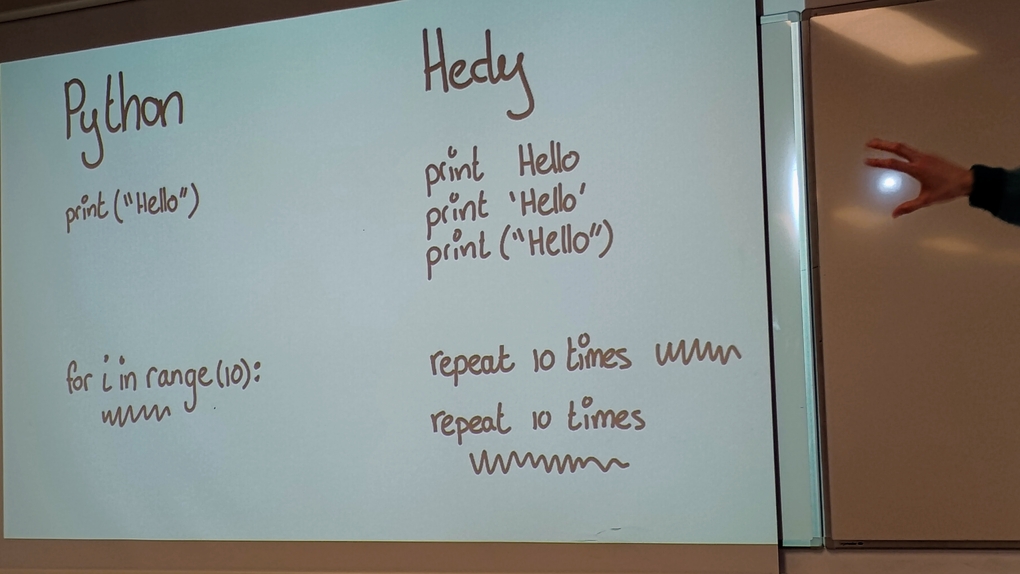 Python
print ("Hello")
for i in range (10):
Hedy
print Hello
print 'Hello'
print ("Hello")
repeat 10 times
repeat 10 times